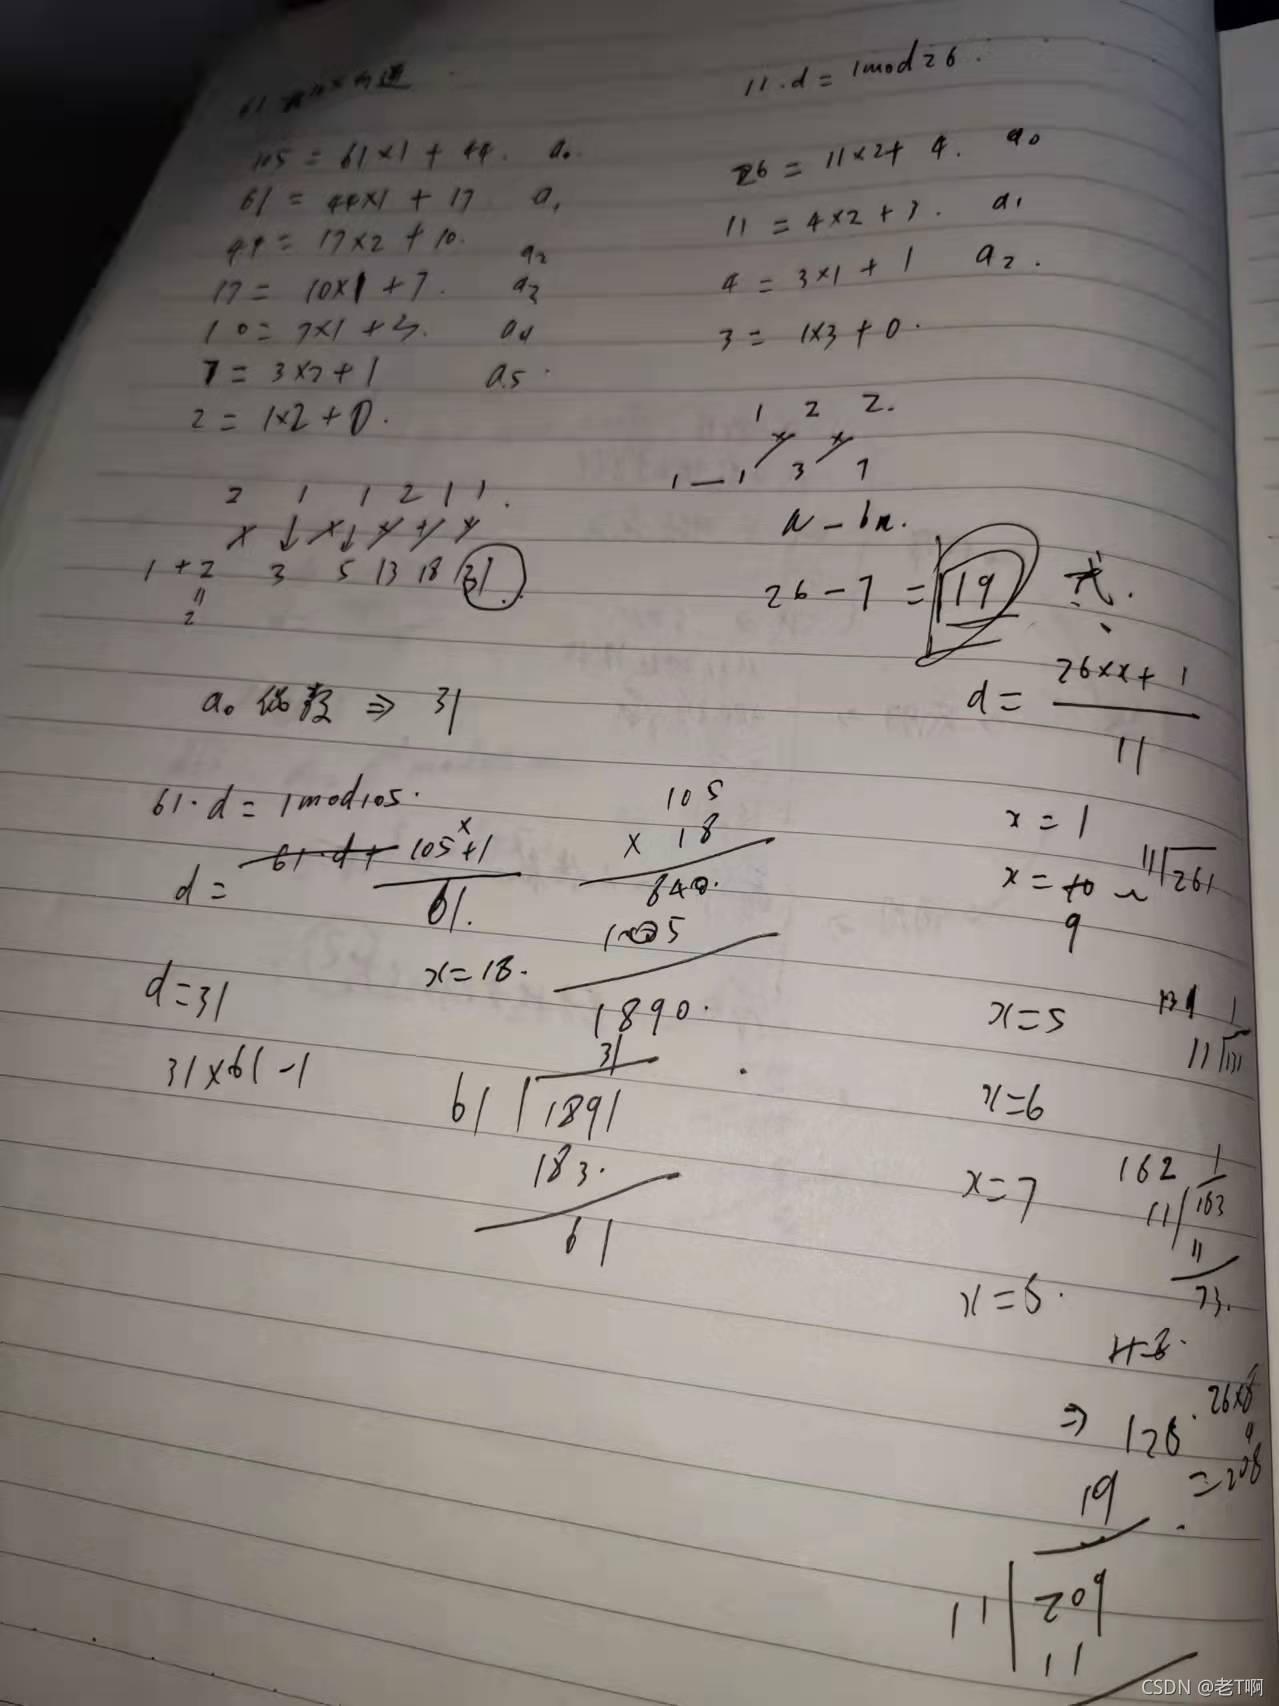 105 = 61×1 + 44. a₀.
61 = 44×1 + 17 a₁
44 = 17×2 + 10. a₂
17 = 10×1 + 7. a₃
10 = 7×1 + 3. a₄
7 = 3×2 + 1 a₅.
2 = 1×2 + 0.
2 1 1 2 1 1.
1 + 2 3 5 13 18 31
"
2
a₀ 系数 ⇒ 31
61·d = 1mod105.
d = 105×+1
61.
x = 18.
d = 31
31×61-1
105
× 18
840.
105
1890.
31
61 1891
183.
61
11·d = 1mod26.
26 = 11×2 + 4. a₀
11 = 4×2 + 3. a₁
4 = 3×1 + 1 a₂.
3 = 1×3 + 0.
1 2 2.
1 — 1 3 7
26 - 7 = 19 或.
d = 26×x + 1
11
x = 1
x = 10
9
11 261
x = 5 131 1
11 131
x = 6
x = 7 162 1
11 163
11
73.
x = 8.
⇒ 26×8
= 208
19
11 209
11
CSDN @老T啊